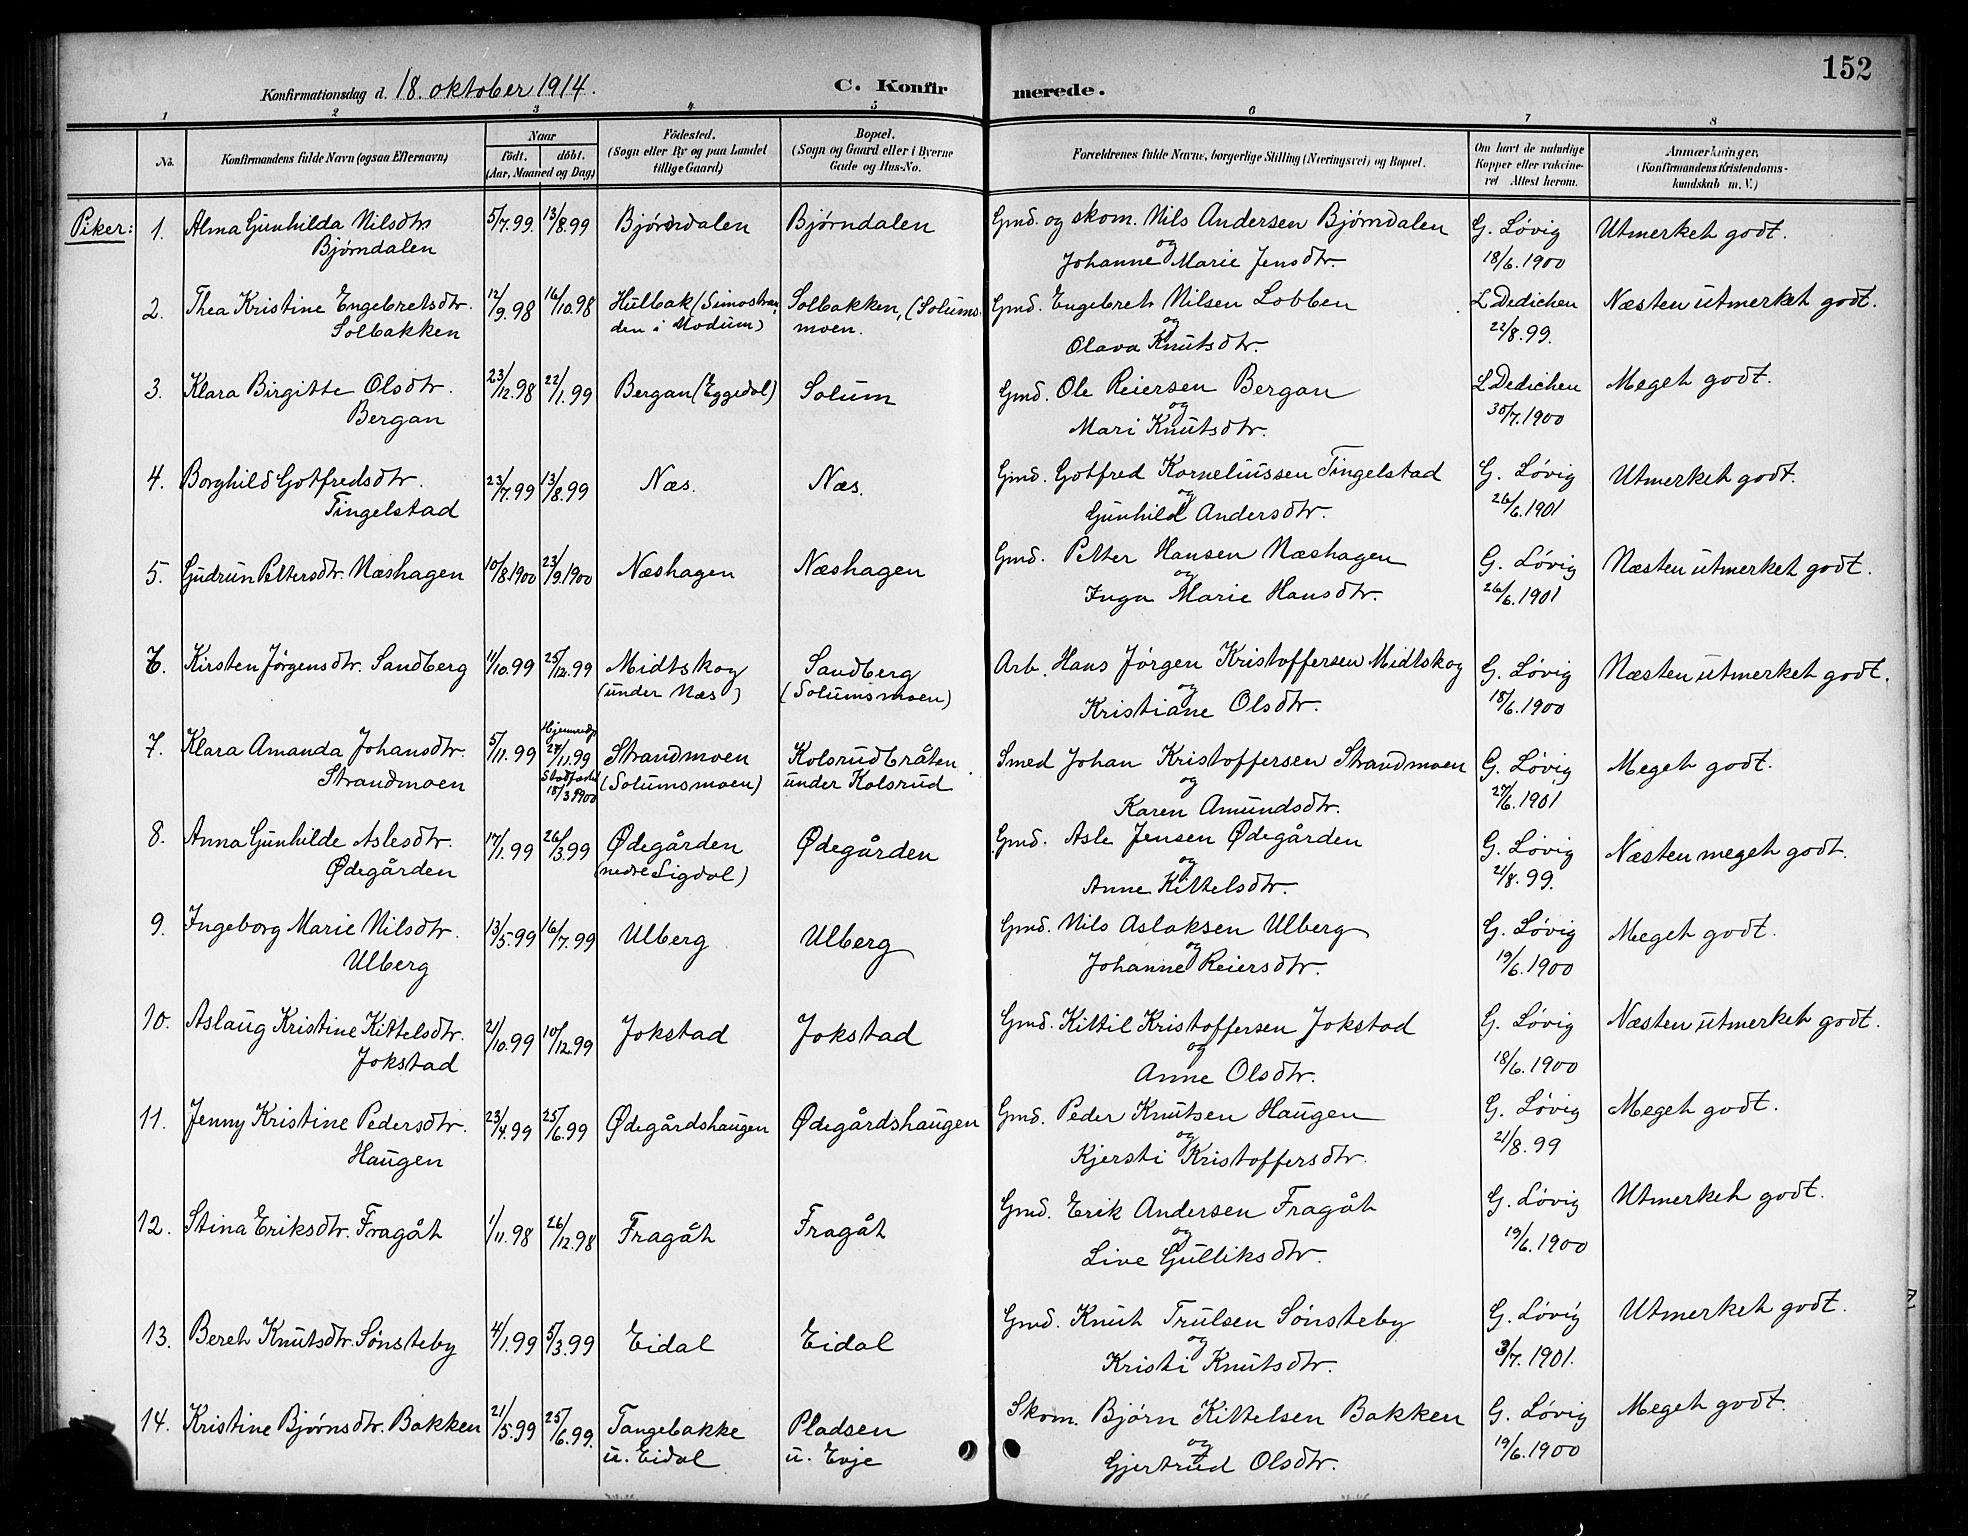 152
Konfirmationsdag d. 18. oktober 1914.
C. Konfirmerede.
1 2 3 4 5 6 7 8
No. Konfirmandens fulde Navn (ogsaa Efternavn) Naar født. døbt. (Aar, Maaned og Dag) Fødested. (Sogn eller By og paa Landet tillige Gaard) Bopæl. (Sogn og Gaard eller i Byerne Gade og Hus-No. Forældrenes fulde Navne, borgerlige Stilling (Næringsvei) og Bopæl. Om havt de naturlige Kopper eller vakcineret Attest herom. Anmærkninger, (Konfirmandens Kristendomskundskab m. V.)
Piker: 1. Alma Gunhilda Nilsdtr. 5/7.99. 13/8.99 Bjørndalen Bjørndalen Gmd. og skom. Nils Andersen Bjørndalen G. Løvig Utmerket godt.
Bjørndalen og Johanne Marie Jensdtr. 18/6.1900
2. Thea Kristine Engebretsdtr. 12/9.98 16/10.98 Hulbak (Simostran- Solbakken, (Solums- Gmd. Engebret Nilsen Lobben L Dedichen Næsten utmerket godt.
Solbakken den i Modum) moen. og Olava Knutsdtr. 22/8.99.
3. Klara Birgitte Olsdtr. 23/12.98 22/1.99 Bergan (Eggedal) Solum Gmd. Ole Reiersen Bergan L Dedichen Meget godt.
Bergan og Mari Knutsdtr. 30/7.1900
4. Borghild Gotfredsdtr. 23/7.99 13/8.99 Næs. Næs. Gmd. Gotfred Korneliussen Tingelstad G. Løvig Utmerket godt.
Tingelstad og Gunhild Andersdtr. 26/6.1901
5. Gudrun Pettersdtr. Næshagen 10/8.1900 23/9.1900 Næshagen Næshagen Gmd. Petter Hansen Næshagen G. Løvig Næsten utmerket godt.
og Inga Marie Hansdtr. 26/6.1901
6. Kirsten Jørgensdtr. Sandberg 1/10.99 25/12.99 Midtskog Sandberg Arb. Hans Jørgen Kristoffersen Midtskog G. Løvig Næsten utmerket godt.
(under Næs) (Solumsmoen) og Kristiane Olsdtr. 18/6.1900
7. Klara Amanda Johansdtr. 5/11.99 Hjemmedp. 27/11.99 Strandmoen Kolsrudbråten Smed Johan Kristoffersen Strandmoen G. Løvig Meget godt.
Strandmoen Stadfæstet 18/3.1900 (Solumsmoen) under Kolsrud og Karen Amundsdtr. 27/6.1901
8. Anna Gunhilde Aslesdtr. 17/1.99 26/3.99 Ødegården Ødegården Gmd. Asle Jensen Ødegården G. Løvig Næsten meget godt.
Ødegården (nedre Sigdal) og Anne Kittelsdtr. 21/8.99.
9. Ingeborg Marie Nilsdtr. 13/5.99 16/7.99 Ulberg Ulberg Gmd. Nils Aslaksen Ulberg G. Løvig Meget godt.
Ulberg og Johanne Reiersdtr. 19/6.1900
10. Aslaug Kristine Kittelsdtr. 21/10.99 10/12.99 Jokstad Jokstad Gmd. Kittil Kristoffersen Jokstad G. Løvig Næsten utmerket godt.
Jokstad og Anne Olsdtr. 18/6.1900
11. Jenny Kristine Pedersdtr. 23/4.99 25/6.99 Ødegårdshaugen Ødegårdshaugen Gmd. Peder Knutsen Haugen G. Løvig Meget godt.
Haugen og Kjersti Kristoffersdtr. 21/8.99
12. Stina Eriksdtr. Fragåt 1/11.98 26/12.98 Fragåt Fragåt Gmd. Erik Andersen Fragåt G. Løvig Utmerket godt.
og Live Gulliksdtr. 19/6.1900
13. Beret Knutsdtr. Sønsteby 4/1.99 5/3.99 Eidal Eidal Gmd. Knut Trulsen Sønsteby G. Løvig Utmerket godt.
og Kristi Knutsdtr. 3/7.1901.
14. Kristine Bjørnsdtr. Bakken 21/5.99 25/6.99. Tangebakke Pladsen Skom. Bjørn Kittelsen Bakken G. Løvig Meget godt.
u. Eidal u. Evje og Gjertrud Olsdtr. 19/6.1900